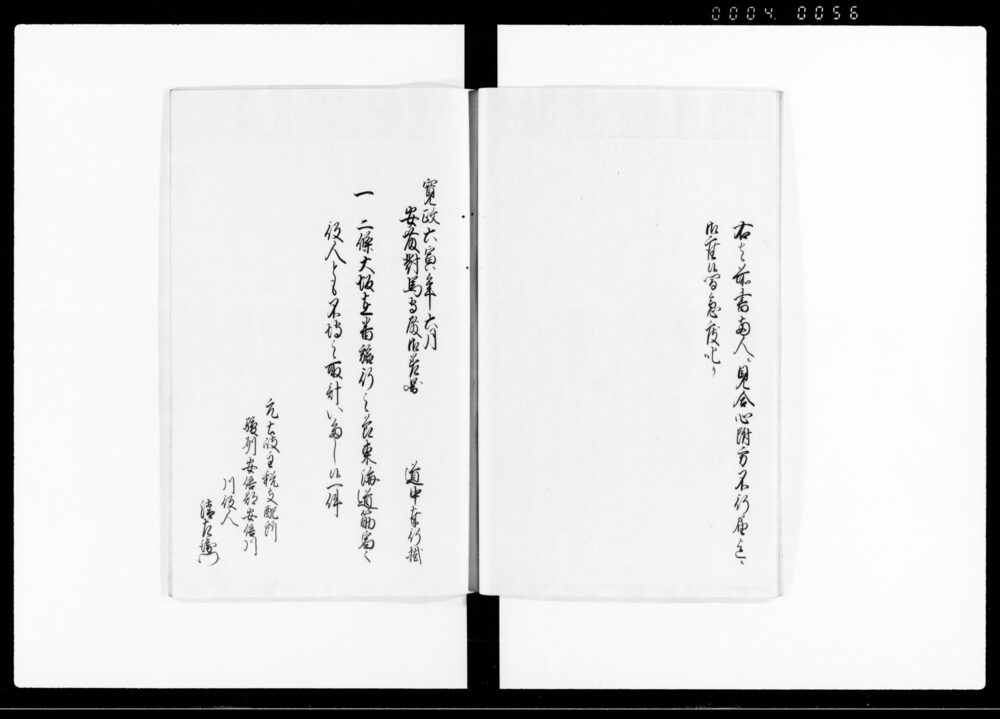 0004 0056
右之前書両人見合心附方不行届ニ
御座候間急度叱り
寛政六寅年六月
安藤對馬守殿御差図
道中奉行掛
一 二條大坂在番旅行之節東海道筋宿々
役人とも不埒之取計いたし候一件
元大岡主税支配所
駿州安倍郡安倍川
川役人
清左衛門